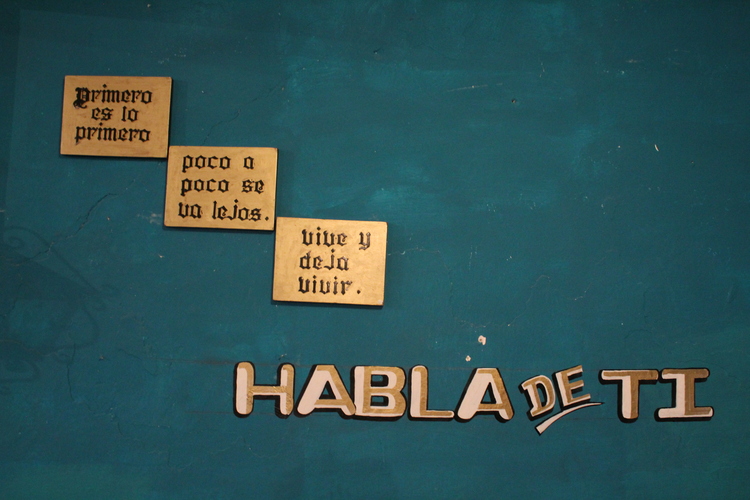 Primero
es lo
primero
poco a
poco se
va lejos.
vive y
deja
vivir.
HABLA DE TI